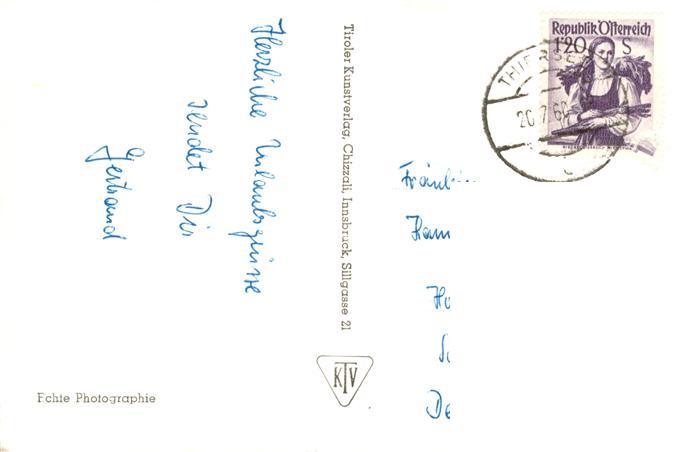 Herzliche Urlaubsgrüsse
sendet Dir
Gertraud
Tiroler Kunstverlag, Chizzali, Innsbruck, Sillgasse 21
KTV
Echte Photographie
Republik Österreich
1·20 S
THIERSEE
20.7.60
Fräul
Ham
Ho
De